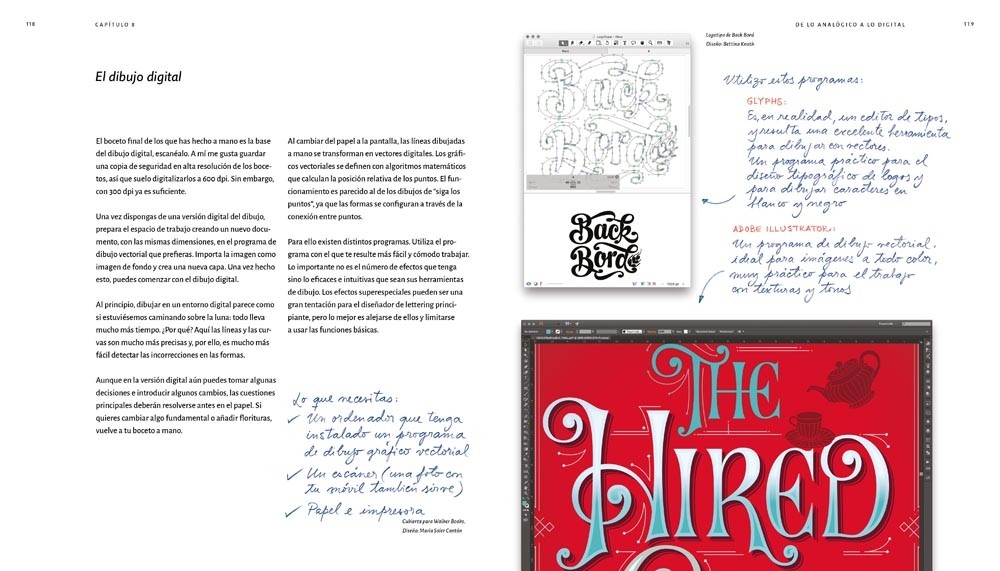 118
CAPÍTULO 8
El dibujo digital
El boceto final de los que has hecho a mano es la base
del dibujo digital, escanéalo. A mí me gusta guardar
una copia de seguridad en alta resolución de los boce-
tos, así que suelo digitalizarlos a 600 dpi. Sin embargo,
con 300 dpi ya es suficiente.
Una vez dispongas de una versión digital del dibujo,
prepara el espacio de trabajo creando un nuevo docu-
mento, con las mismas dimensiones, en el programa de
dibujo vectorial que prefieras. Importa la imagen como
imagen de fondo y crea una nueva capa. Una vez hecho
esto, puedes comenzar con el dibujo digital.
Al principio, dibujar en un entorno digital parece como
si estuviésemos caminando sobre la luna: todo lleva
mucho más tiempo. ¿Por qué? Aquí las líneas y las cur-
vas son mucho más precisas y, por ello, es mucho más
fácil detectar las incorrecciones en las formas.
Aunque en la versión digital aún puedes tomar algunas
decisiones e introducir algunos cambios, las cuestiones
principales deberán resolverse antes en el papel. Si
quieres cambiar algo fundamental o añadir florituras,
vuelve a tu boceto a mano.
Al cambiar del papel a la pantalla, las líneas dibujadas
a mano se transforman en vectores digitales. Los gráfi-
cos vectoriales se definen con algoritmos matemáticos
que calculan la posición relativa de los puntos. El fun-
cionamiento es parecido al de los dibujos de "siga los
puntos", ya que las formas se configuran a través de la
conexión entre puntos.
Para ello existen distintos programas. Utiliza el pro-
grama con el que te resulte más fácil y cómodo trabajar.
Lo importante no es el número de efectos que tenga
sino lo eficaces e intuitivas que sean sus herramientas
de dibujo. Los efectos superespeciales pueden ser una
gran tentación para el diseñador de lettering princi-
piante, pero lo mejor es alejarse de ellos y limitarse
a usar las funciones básicas.
Lo que necesitas:
Un ordenador que tenga
instalado un programa
de dibujo gráfico vectorial
Un escáner (una foto con
tu móvil también sirve)
Papel e impresora
Cubierta para Walker Books.
Diseño: Maria Soler Cantón
DE LO ANALÓGICO A LO DIGITAL
119
Logotipo de Back Bord
Diseño: Bettina Knoth
Back
Bord
Back
Bord
Utilizo estos programas:
GLYPHS:
Es, en realidad, un editor de tipos,
y resulta una excelente herramienta
para dibujar con vectores.
Un programa práctico para el
diseño tipográfico de logos y
para dibujar caracteres en
blanco y negro
ADOBE ILLUSTRATOR:
Un programa de dibujo vectorial,
ideal para imágenes a todo color,
muy práctico para el trabajo
con texturas y tonos
THE
HIRED